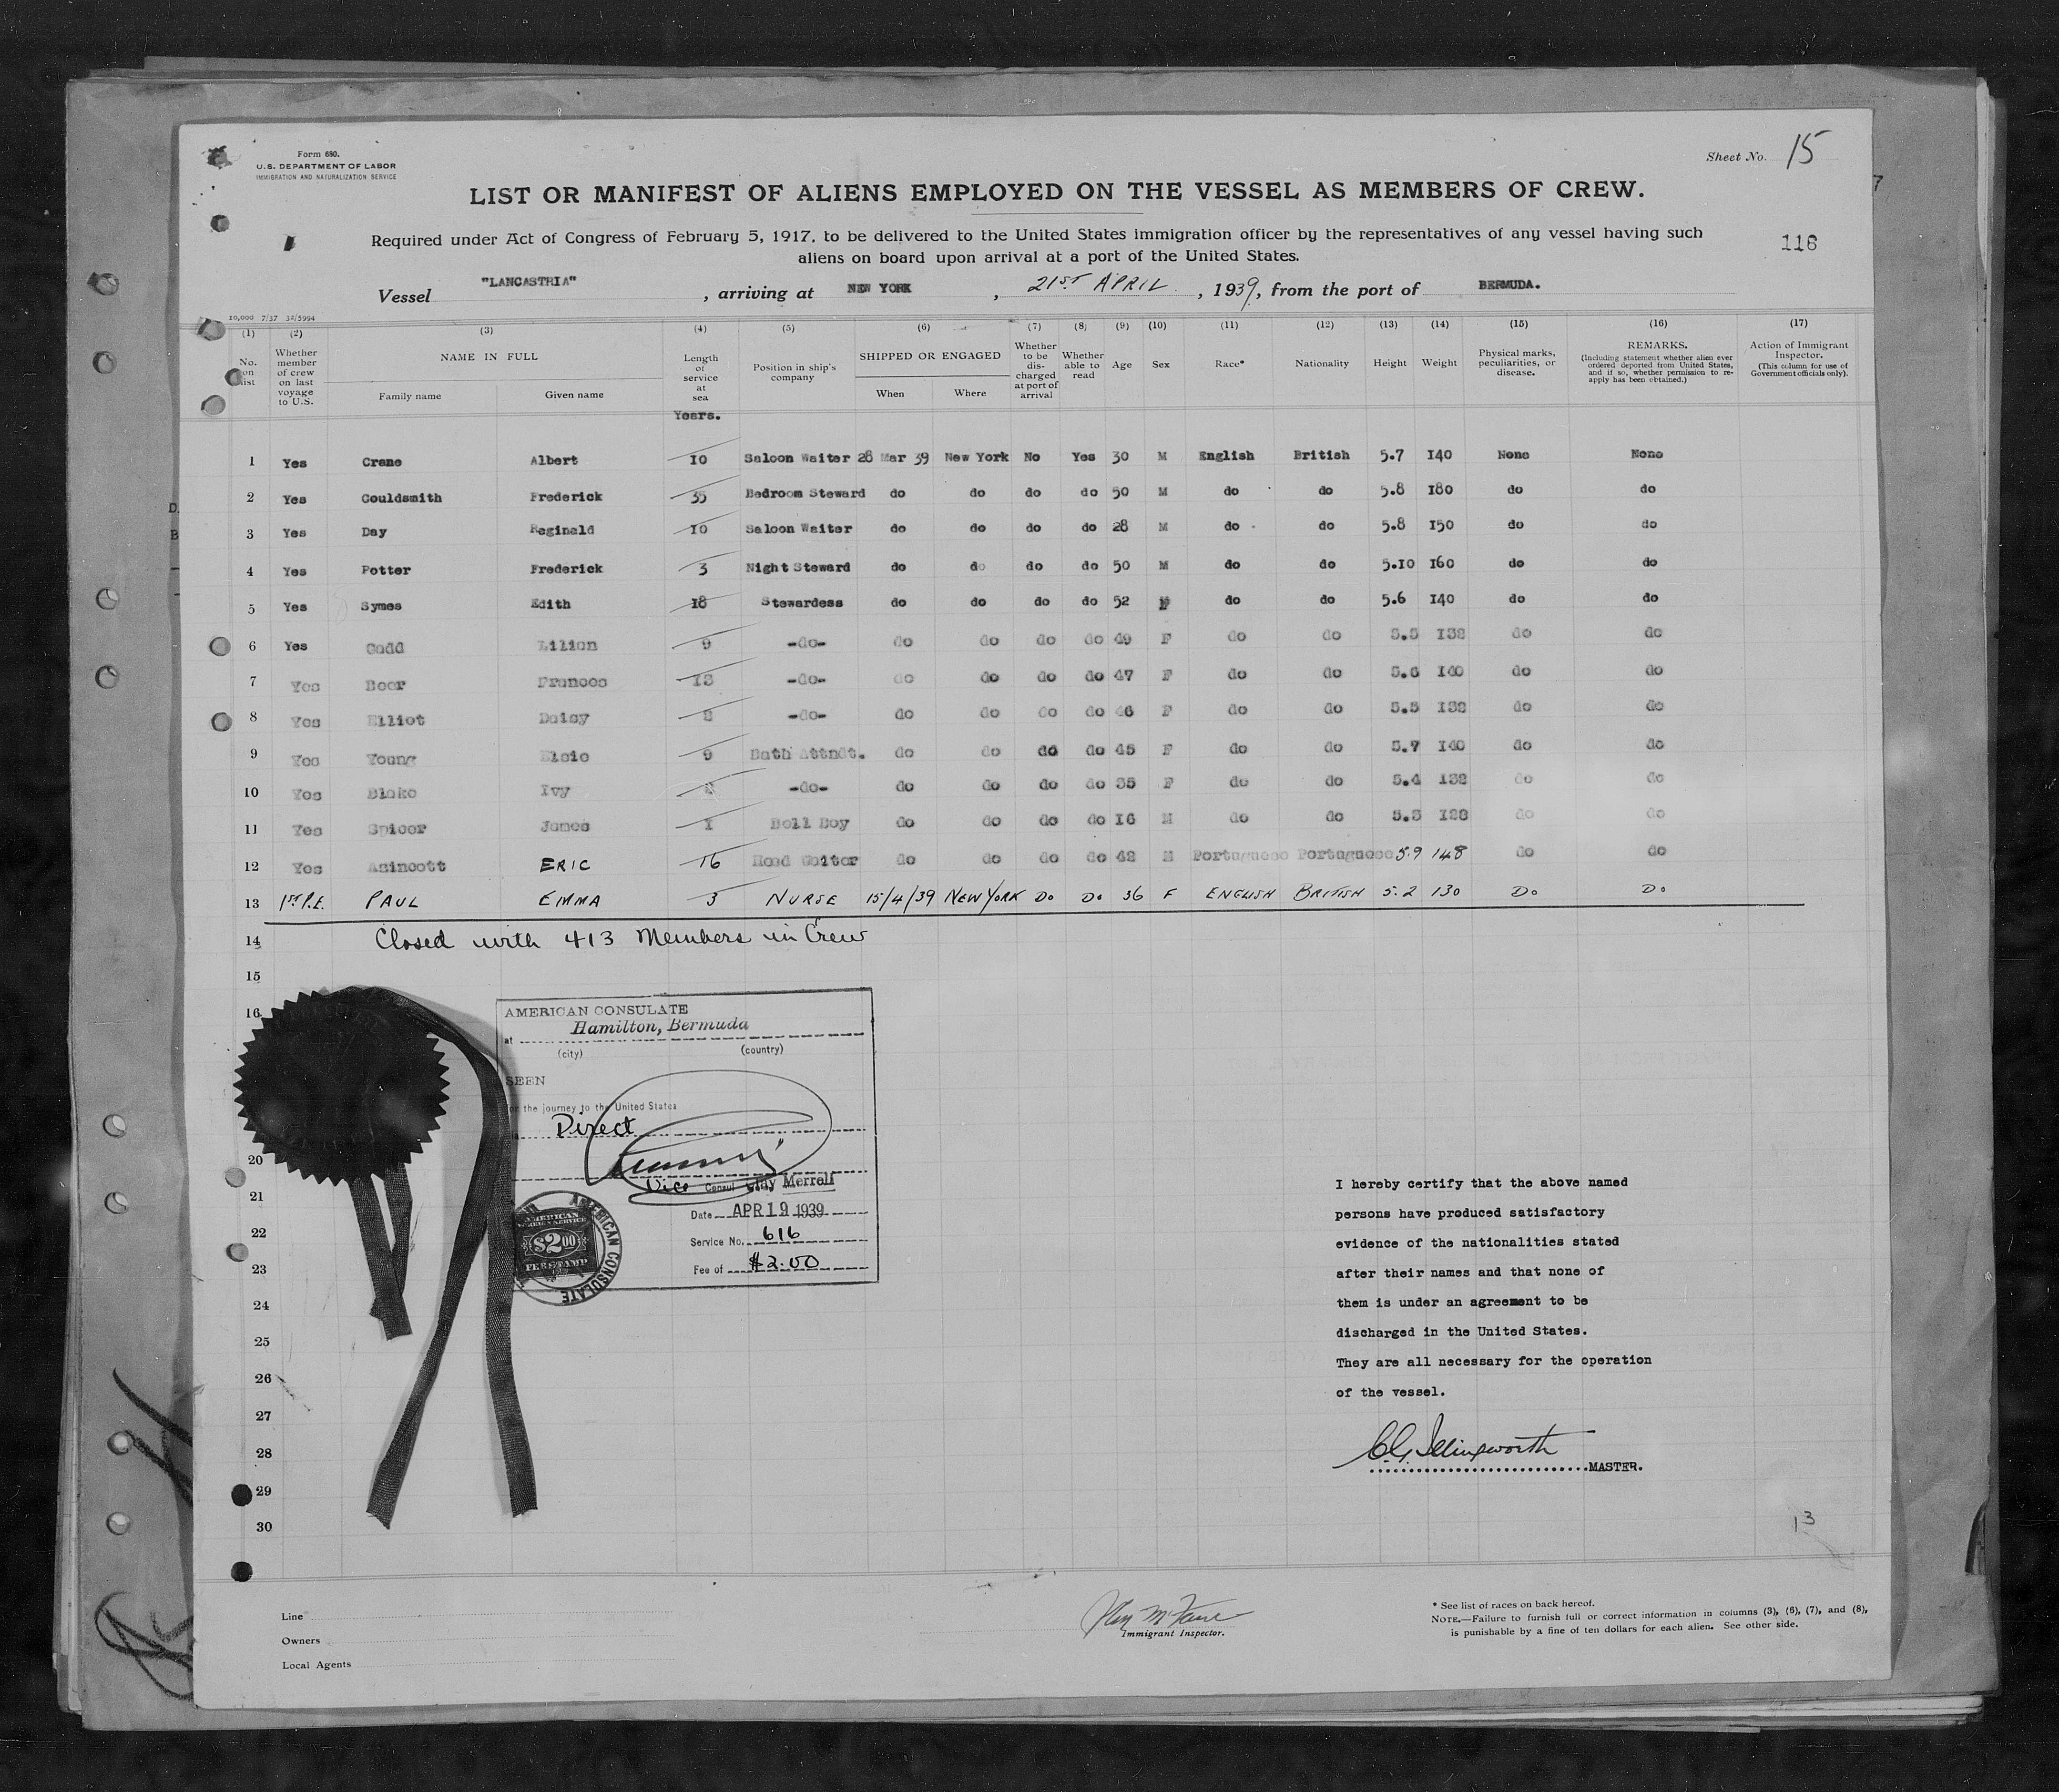 Form 680.
U.S. DEPARTMENT OF LABOR
IMMIGRATION AND NATURALIZATION SERVICE
Sheet No. 15
LIST OR MANIFEST OF ALIENS EMPLOYED ON THE VESSEL AS MEMBERS OF CREW.
Required under Act of Congress of February 5, 1917, to be delivered to the United States immigration officer by the representatives of any vessel having such
aliens on board upon arrival at a port of the United States.
116
Vessel "LANCASTRIA" , arriving at NEW YORK , 21ST APRIL , 1939, from the port of BERMUDA.
10,000 7/37 32/5994
(1) (2) (3) (4) (5) (6) (7) (8) (9) (10) (11) (12) (13) (14) (15) (16) (17)
No. on list
Whether member of crew on last voyage to U.S.
NAME IN FULL
Family name Given name
Length of service at sea
Years.
Position in ship's company
SHIPPED OR ENGAGED
When Where
Whether to be discharged at port of arrival
Whether able to read
Age
Sex
Race*
Nationality
Height
Weight
Physical marks, peculiarities, or disease.
REMARKS.
(Including statement whether alien ever ordered deported from United States, and if so, whether permission to reapply has been obtained.)
Action of Immigrant Inspector.
(This column for use of Government officials only).
1 Yes Crane Albert 10 Saloon Waiter 28 Mar 39 New York No Yes 30 M English British 5.7 140 None None
2 Yes Gouldsmith Frederick 35 Bedroom Steward do do do do 50 M do do 5.8 180 do do
3 Yes Day Reginald 10 Saloon Waiter do do do do 28 M do do 5.8 150 do do
4 Yes Potter Frederick 3 Night Steward do do do do 50 M do do 5.10 160 do do
5 Yes Symes Edith 18 Stewardess do do do do 52 F do do 5.6 140 do do
6 Yes Gadd Lilian 9 -do- do do do do 49 F do do 5.5 132 do do
7 Yes Beer Frances 13 -do- do do do do 47 F do do 5.6 140 do do
8 Yes Elliot Daisy -do- do do do do 46 F do do 5.5 132 do do
9 Yes Young Elsie 9 Bath Attndt. do do do do 45 F do do 5.7 140 do do
10 Yes Blake Ivy -do- do do do do 35 F do do 5.4 132 do do
11 Yes Spicer James 1 Bell Boy do do do do 16 M do do 5.3 128 do do
12 Yes Asincott ERIC 16 Head Waiter do do do do 42 M Portuguese Portuguese 5.9 148 do do
13 1ST P.E. PAUL EMMA 3 NURSE 15/4/39 NEW YORK Do Do 36 F ENGLISH BRITISH 5.2 130 Do Do
14 Closed with 413 Members in Crew
15
16
AMERICAN CONSULATE
at Hamilton, Bermuda
(city) (country)
SEEN
on the journey to the United States
Direct
Vice Consul Clay Merrell
Date APR 19 1939
Service No. 616
Fee of $2.00
AMERICAN
FOREIGN SERVICE
$2.00
FEE STAMP
AMERICAN CONSULATE
20
21
22
23
24
25
26
27
28
29
30
I hereby certify that the above named
persons have produced satisfactory
evidence of the nationalities stated
after their names and that none of
them is under an agreement to be
discharged in the United States.
They are all necessary for the operation
of the vessel.
C.G. Illingworth
MASTER.
13
Line
Owners
Local Agents
Immigrant Inspector.
* See list of races on back hereof.
NOTE.—Failure to furnish full or correct information in columns (3), (6), (7), and (8),
is punishable by a fine of ten dollars for each alien. See other side.